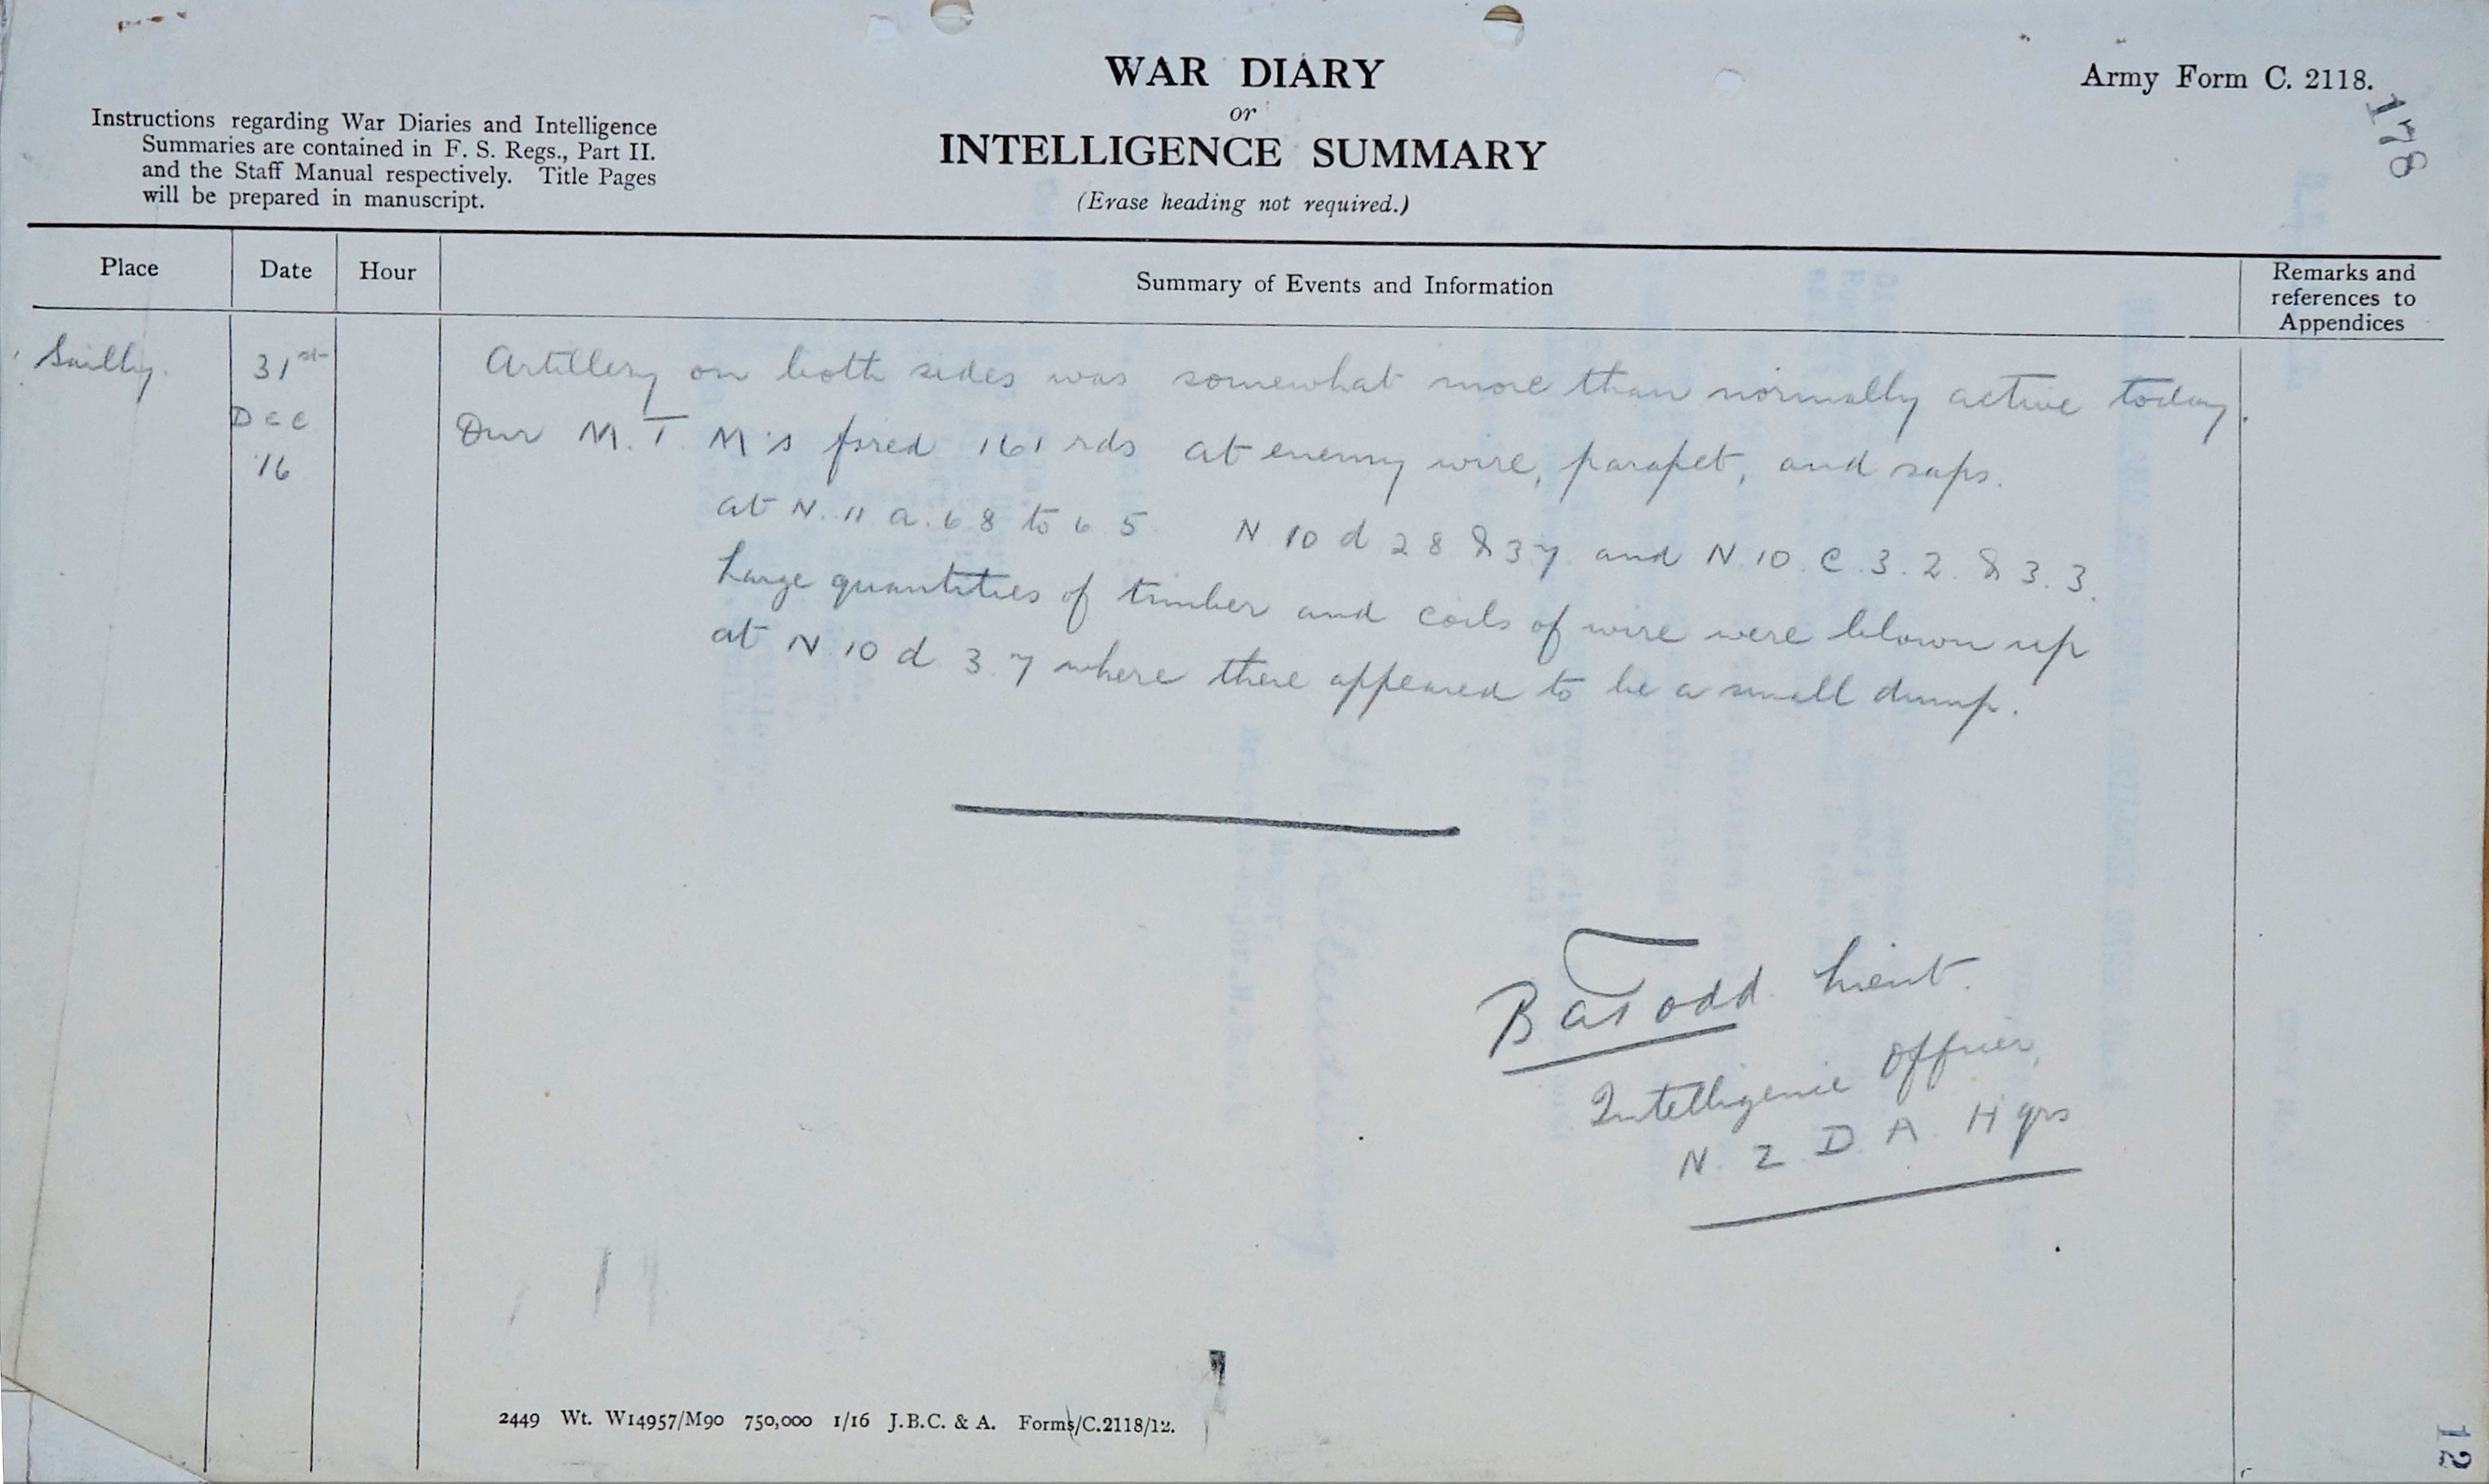 WAR DIARY
or
INTELLIGENCE SUMMARY
(Erase heading not required.)
Army Form C. 2118.
178
Instructions regarding War Diaries and Intelligence
Summaries are contained in F. S. Regs., Part II.
and the Staff Manual respectively. Title Pages
will be prepared in manuscript.
Place Date Hour Summary of Events and Information Remarks and
references to
Appendices
Sailly. 31st Artillery on both sides was somewhat more than normally active today.
Dec Our M.T. M's fired 161 rds at enemy wire, parapet, and saps.
'16
at N. 11 a. 6 8 to 6 5 N 10 d 2 8 & 3 7 and N. 10. C. 3. 2. & 3. 3.
Large quantities of timber and coils of wire were blown up
at N 10 d 3. 7 where there appeared to be a small dump.
Todd Lieut.
Intelligence Officer,
N. Z D A Hqrs
2449 Wt. W14957/M90 750,000 1/16 J.B.C. & A. Forms/C.2118/12.
12